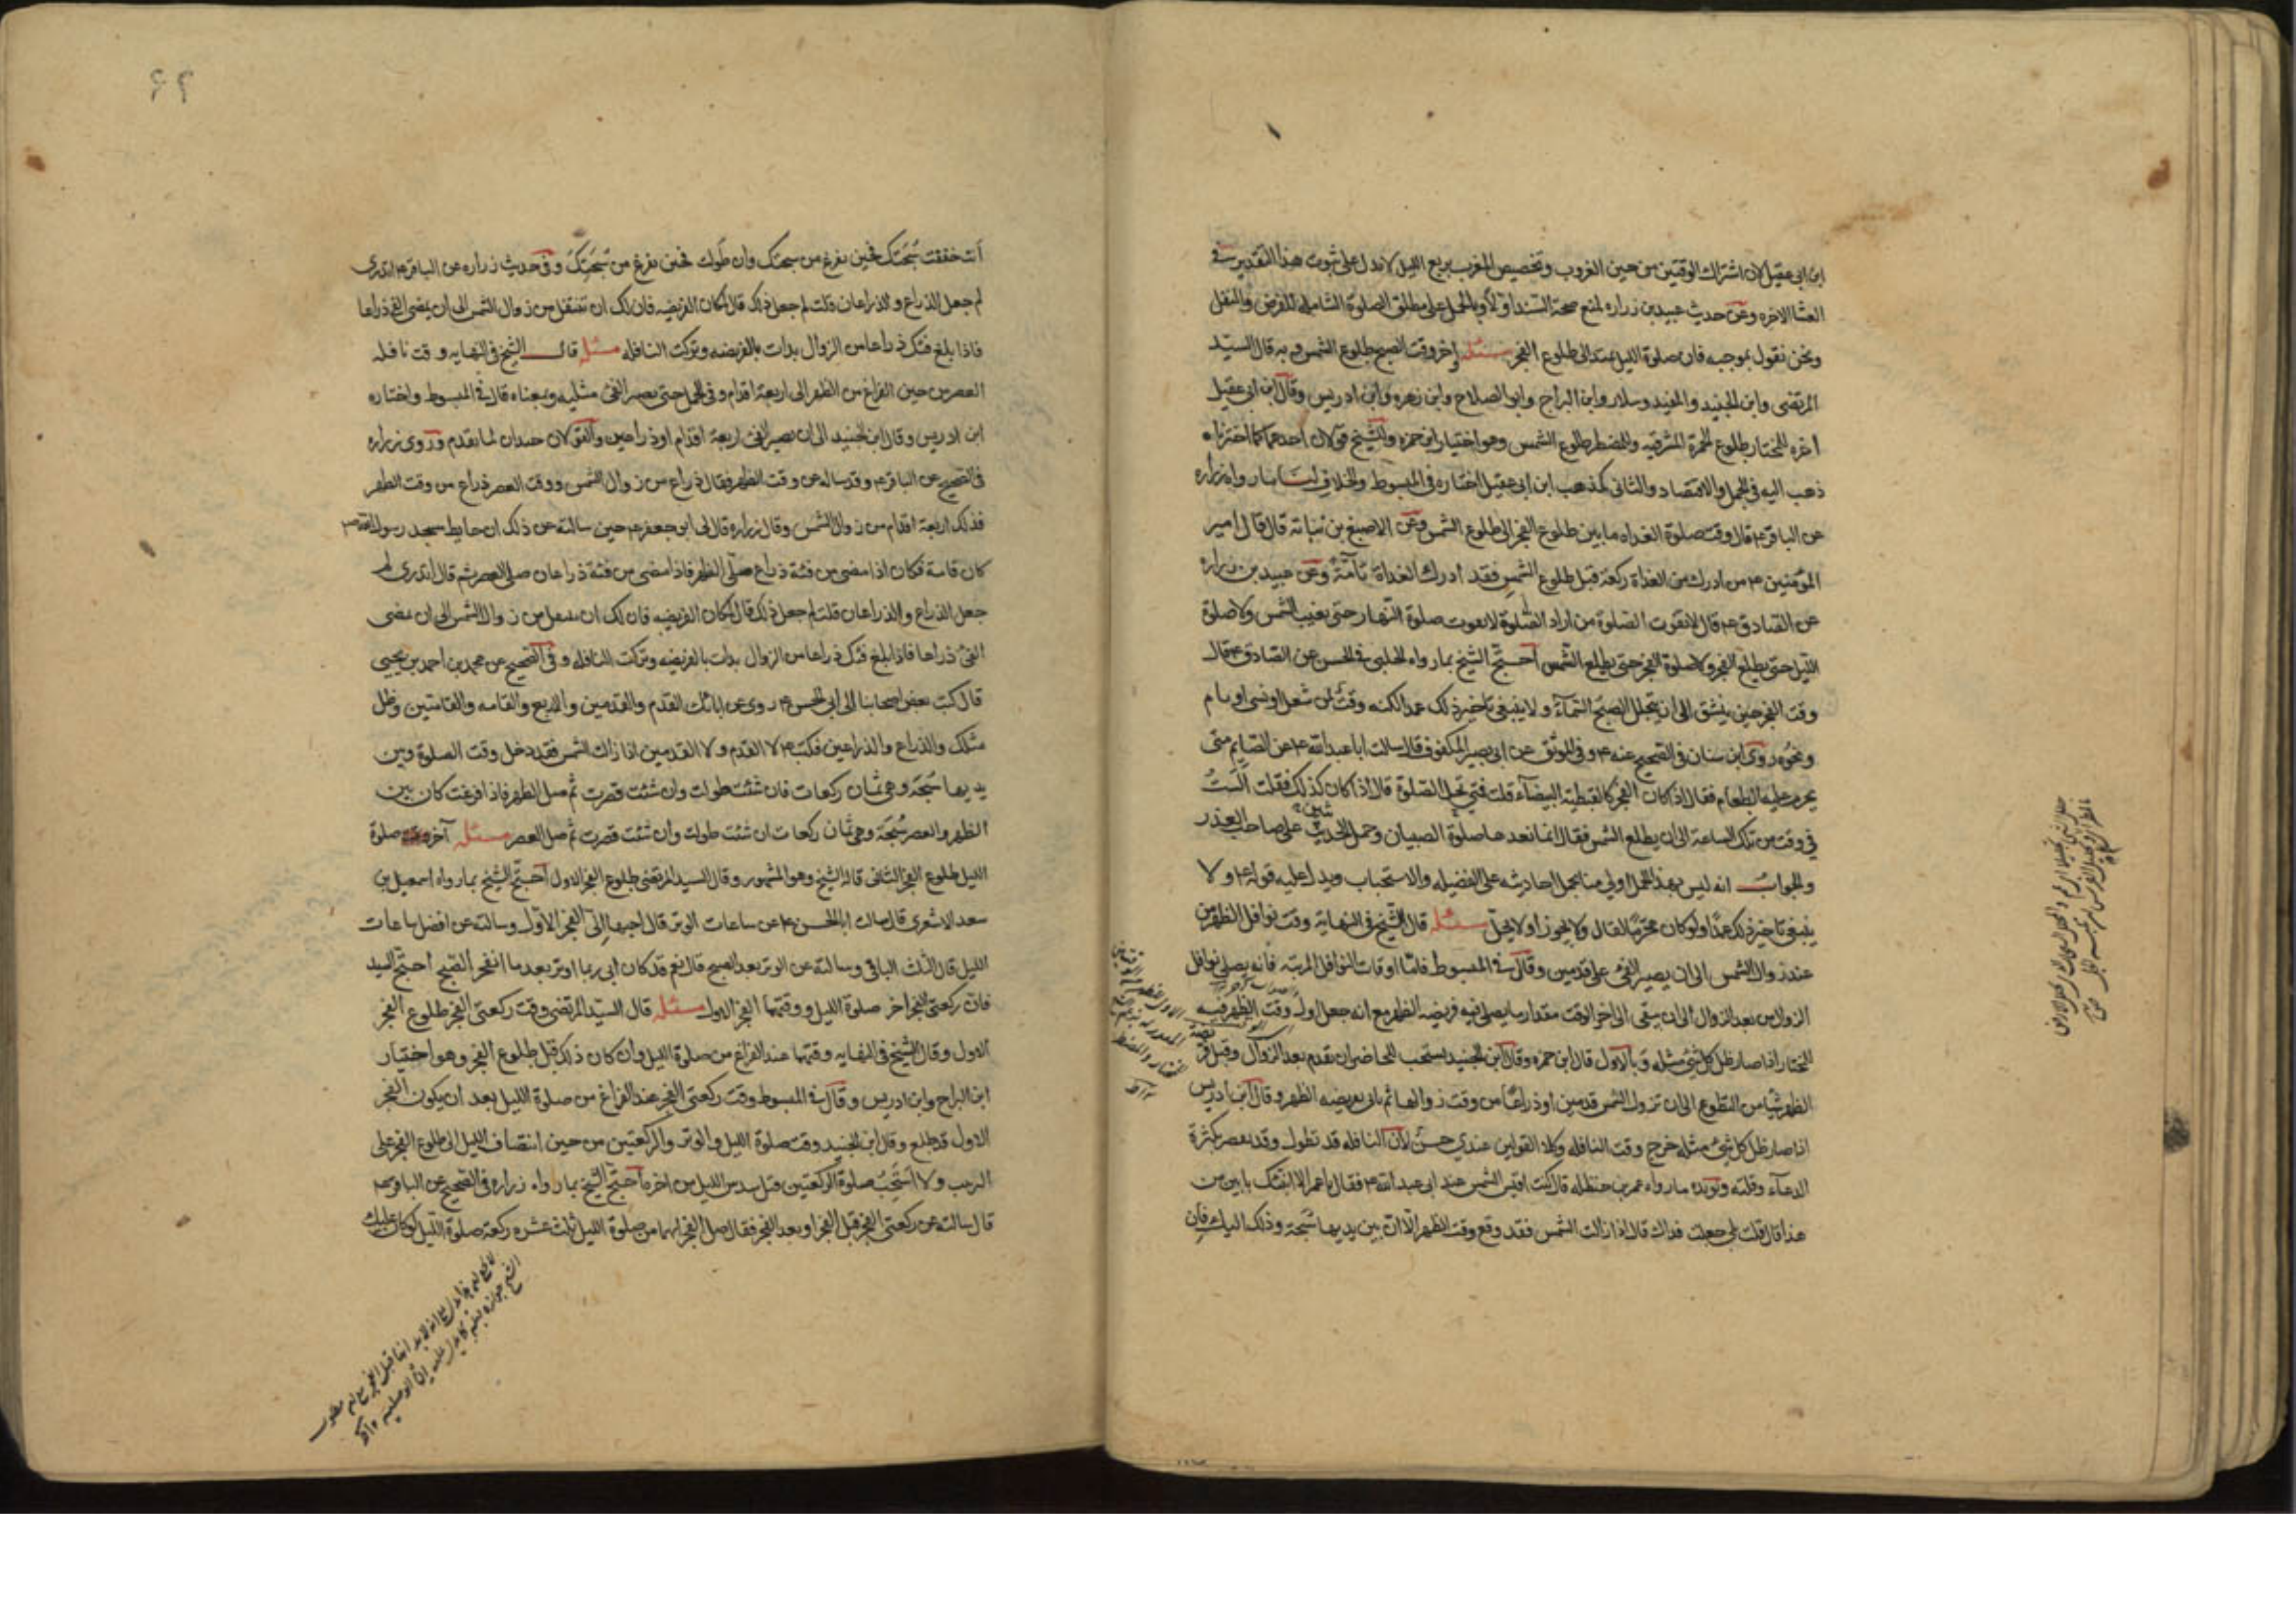 ابن ابى عقيل لان اشتراك الوقتين من حين الغروب وتخصيص المغرب بربع الليل لا يدل على ثبوت هذا التقدير فى
العشا الاخره وعن حديث عبيد بن زراره لمنع صحة السند اولا وبالحمل على مطلق الصلوة الشامله للفرض والنفل
ونحن نقول بموجبه فان صلوة الليل يمتد الى طلوع الفجر مسئله اخر وقت الصبح طلوع الشمس وبه قال السيد
المرتضى وابن الجنيد والمفيد وسلار وابن البراج وابو الصلاح وابن زهره وابن ادريس وقال ابن ابى عقيل
اخره للمختار طلوع الحمرة المشرقيه وللمضطر طلوع الشمس وهو اختيار ابن حمزه وللشيخ قولان احدهما كما اخترناه
ذهب اليه فى الجمل والاقتصاد والثانى كمذهب ابن ابى عقيل اختاره فى المبسوط والخلاف لنا ما رواه زراره
عن الباقر ع قال وقت صلوة الغداه ما بين طلوع الفجر الى طلوع الشمس وعن الاصبغ بن نباته قال قال امير
المؤمنين ع من ادرك من الغداة ركعة قبل طلوع الشمس فقد ادرك الغداة تامة وعن عبيد بن زراره
عن الصادق ع قال لا تفوت الصلوة من اراد الصلوة لا تفوت صلوة النهار حتى تغيب الشمس ولا صلوة
الليل حتى يطلع الفجر ولا صلوة الفجر حتى يطلع الشمس احتج الشيخ بما رواه الحلبى فى الحسن عن الصادق ع قال
وقت الفجر حين ينشق الى ان يتجلل الصبح السماء ولا ينبغى تاخير ذلك عمدا لكنه وقت لمن شغل او نسى او نام
ونحوه روى ابن سنان فى الصحيح عنه ع وفى الموثق عن ابى بصير المكفوف قال سالت ابا عبدالله ع عن الصايم متى
يحرم عليه الطعام فقال اذا كان الفجر كالقبطية البيضاء قلت فمتى تحل الصلوة قال اذا كان كذلك فقلت الست
فى وقت من تلك الساعة الى ان يطلع الشمس فقال لا انما نعدها صلوة الصبيان وحمل الحديث على صاحب العذر
والجواب انه ليس بهذا الحمل اولى منا بحمل احاديثه على الفضيله والاستحباب ويدل عليه قوله ع ولا
ينبغى تاخير ذلك عمدا ولو كان محرما لقال ولا يجوز او لا يحل مسئله قال الشيخ فى النهاية وقت نوافل الظهر من
عند زوال الشمس الى ان يصير الفئ على قدمين وقال فى المبسوط فاما اوقات النوافل المرتبه فانه يصلى نوافل
الزوال من بعد الزوال الى ان يبقى الى اخر الوقت مقدار ما يصلى فيه فريضه الظهر مع انه جعل اول وقت الظهر فيه
للمختار اذا صار ظل كل شئ مثله وبالاول قال ابن حمزه وقال ابن الجنيد يستحب للحاضر ان يقدم بعد الزوال وقبل
الظهر شيئا من التطوع الى ان تزول الشمس قدمين او ذراعا من وقت زوالها ثم ياتى بفريضه الظهر وقال ابن ادريس
اذا صار ظل كل شئ مثله خرج وقت النافله وكلا القولين عندى حسن لان النافله قد تطول وقد تقصر بكثرة
الدعاء وقلته ويؤيده ما رواه عمر بن حنظله قال كنت اقيس الشمس عند ابى عبدالله ع فقال يا عمر الا انبئك بابين من
هذا قال قلت بلى جعلت فداك قال اذا زالت الشمس فقد وقع وقت الظهر الا ان بين يديها سبحة وذلك اليك فان
٦٩
انت خففت سبحتك فحين تفرغ من سبحتك وان طولت فحين تفرغ من سبحتك وفى حديث زراره عن الباقر ع اتدرى
لم جعل الذراع والذراعان قلت لم جعل ذلك قال لمكان الفريضه فان لك ان تتنفل من زوال الشمس الى ان يمضى الفئ ذراعا
فاذا بلغ فيئك ذراعا من الزوال بدات بالفريضه وتركت النافله مسئله قال الشيخ فى النهايه وقت نافله
العصر من حين الفراغ من الظهر الى اربعة اقدام وفى الجمل حتى يصير الفئ مثليه وبمعناه قال فى المبسوط واختاره
ابن ادريس وقال ابن الجنيد الى ان يصير الفئ اربعة اقدام او ذراعين والقولان جيدان لما تقدم وروى زراره
فى الصحيح عن الباقر ع وقد ساله عن وقت الظهر فقال ذراع من زوال الشمس ووقت العصر ذراع من وقت الظهر
فذلك اربعة اقدام من زوال الشمس وقال زراره قال لى ابو جعفر ع حين سالته عن ذلك ان حايط مسجد رسول الله ص
كان قامة فكان اذا مضى من فيئه ذراع صلى الظهر فاذا مضى من فيئه ذراعان صلى العصر ثم قال اتدرى لم
جعل الذراع والذراعان قلت لم جعل ذلك قال لمكان الفريضه فان لك ان تتنفل من زوال الشمس الى ان يمضى
الفئ ذراعا فاذا بلغ فيئك ذراعا من الزوال بدات بالفريضه وتركت النافله وفى الصحيح عن محمد بن احمد بن يحيى
قال كتب بعض اصحابنا الى ابى الحسن ع روى عن ابائك القدم والقدمين والاربع والقامه والقامتين وظل
مثلك والذراع والذراعين فكتب ع لا القدم ولا القدمين اذا زالت الشمس فقد دخل وقت الصلوة وبين
يديها سبحة وهى ثمان ركعات فان شئت طولت وان شئت قصرت ثم صل الظهر فاذا فرغت كان بين
الظهر والعصر سبحة وهى ثمان ركعات ان شئت طولت وان شئت قصرت ثم صل العصر مسئله آخر وقت صلوة
الليل طلوع الفجر الثانى قاله الشيخ وهو المشهور وقال السيد المرتضى طلوع الفجر الاول احتج الشيخ بما رواه اسمعيل بن
سعد الاشعرى قال سالت ابا الحسن ع عن ساعات الوتر قال احبها الى الفجر الاول وسالته عن افضل ساعات
الليل قال الثلث الباقى وسالته عن الوتر بعد الصبح قال نعم قد كان ابى ربما اوتر بعد ما انفجر الصبح احتج السيد
فان ركعتى الفجر اخر صلوة الليل ووقتهما الفجر الاول مسئله قال السيد المرتضى وقت ركعتى الفجر طلوع الفجر
الاول وقال الشيخ فى النهايه وقتهما عند الفراغ من صلوة الليل وان كان ذلك قبل طلوع الفجر وهو اختيار
ابن البراج وابن ادريس وقال فى المبسوط وقت ركعتى الفجر عند الفراغ من صلوة الليل بعد ان يكون الفجر
الاول قد طلع وقال ابن الجنيد وقت صلوة الليل والوتر والركعتين من حين انتصاف الليل الى طلوع الفجر على
الترتيب ولا استحب صلوة الركعتين قبل سدس الليل من اخره احتج الشيخ بما رواه زراره فى الصحيح عن الباقر ع
قال سالته عن ركعتى الفجر قبل الفجر او بعد الفجر فقال قبل الفجر انهما من صلوة الليل ثلث عشره ركعة صلوة الليل لو كان عليك